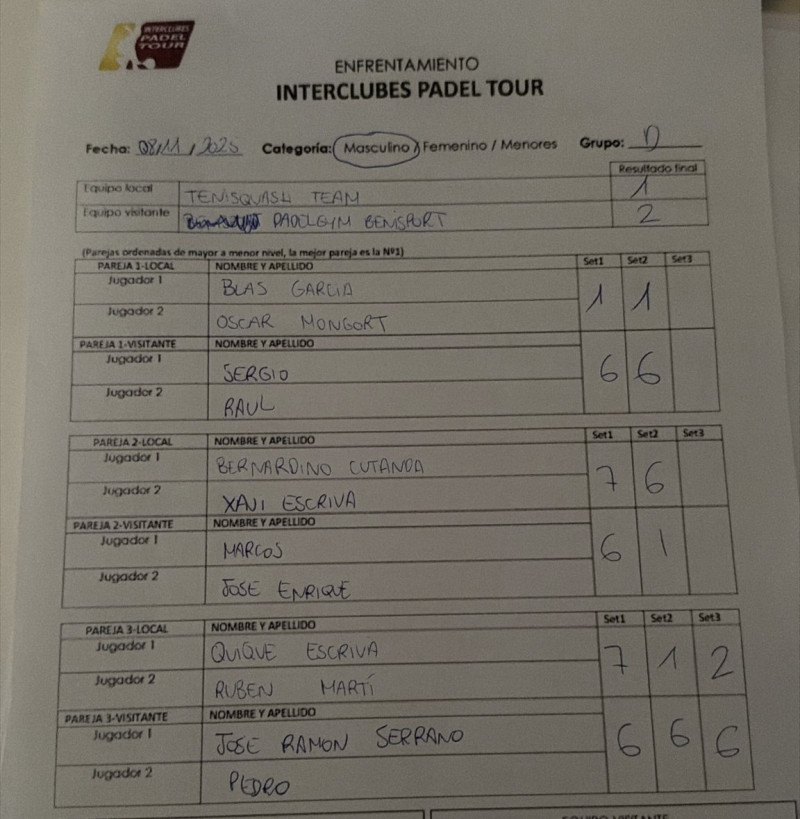 INTERCLUBES
PADEL
TOUR
ENFRENTAMIENTO
INTERCLUBES PADEL TOUR
Fecha: 08/11/2025 Categoría: Masculino / Femenino / Menores Grupo: D
Resultado final
Equipo local TENISQUASH TEAM 1
Equipo visitante PADELGYM BENISPORT 2
(Parejas ordenadas de mayor a menor nivel, la mejor pareja es la Nº1)
PAREJA 1-LOCAL NOMBRE Y APELLIDO Set1 Set2 Set3
Jugador 1 BLAS GARCIA 1 1
Jugador 2 OSCAR MONGORT
PAREJA 1-VISITANTE NOMBRE Y APELLIDO
Jugador 1 SERGIO 6 6
Jugador 2 RAUL
PAREJA 2-LOCAL NOMBRE Y APELLIDO Set1 Set2 Set3
Jugador 1 BERNARDINO CUTANDA 7 6
Jugador 2 XAVI ESCRIVA
PAREJA 2-VISITANTE NOMBRE Y APELLIDO
Jugador 1 MARCOS 6 1
Jugador 2 JOSE ENRIQUE
PAREJA 3-LOCAL NOMBRE Y APELLIDO Set1 Set2 Set3
Jugador 1 QUIQUE ESCRIVA 7 1 2
Jugador 2 RUBEN MARTÍ
PAREJA 3-VISITANTE NOMBRE Y APELLIDO
Jugador 1 JOSE RAMON SERRANO 6 6 6
Jugador 2 PEDRO